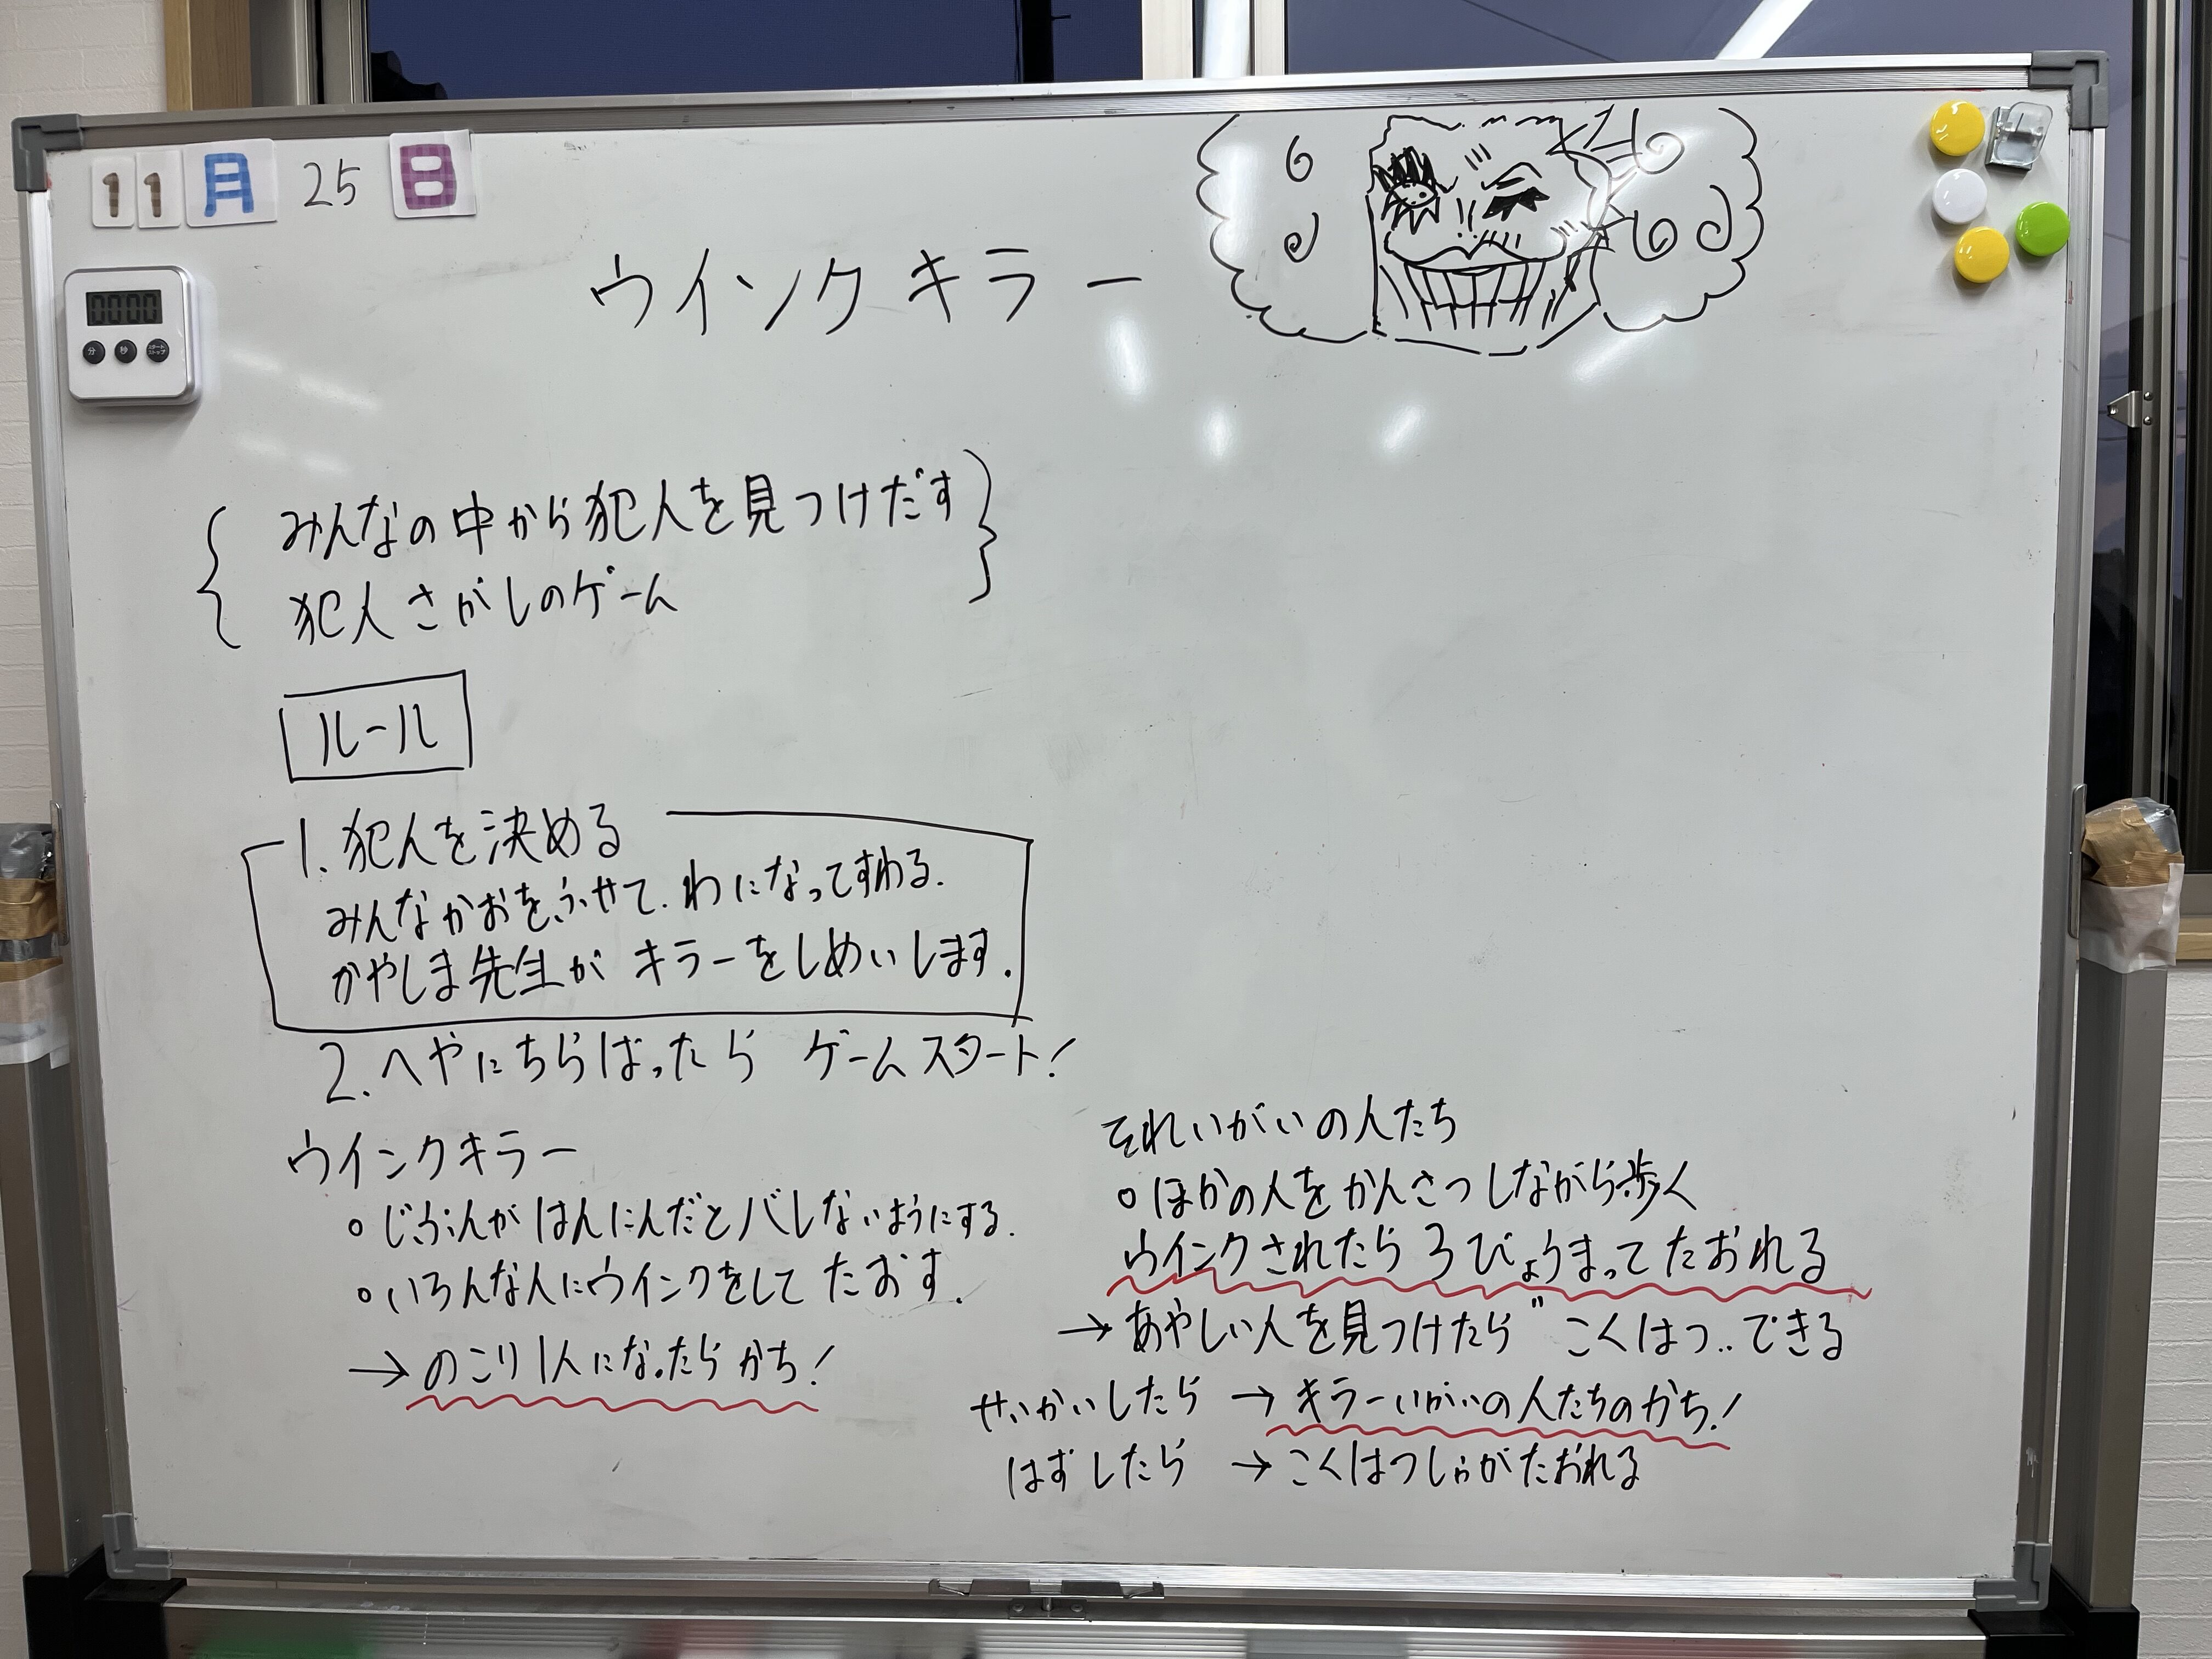 11月25日
ウインクキラー
0000
分 秒 スタート ストップ
みんなの中から犯人を見つけだす
犯人さがしのゲーム
ルール
1. 犯人を決める
みんなかおをふせて、わになってすわる.
かやしま先生がキラーをしめいします.
2. へやにちらばったら ゲームスタート!
ウインクキラー
○じぶんがはんにんだとバレないようにする.
○いろんな人にウインクをして たおす.
→のこり1人になったらかち!
それいがいの人たち
○ほかの人をかんさつしながら歩く
ウインクされたら3びょうまってたおれる
→あやしい人を見つけたら"こくはつ"できる
せいかいしたら → キラーいがいの人たちのかち!
はずしたら → こくはつしゃがたおれる